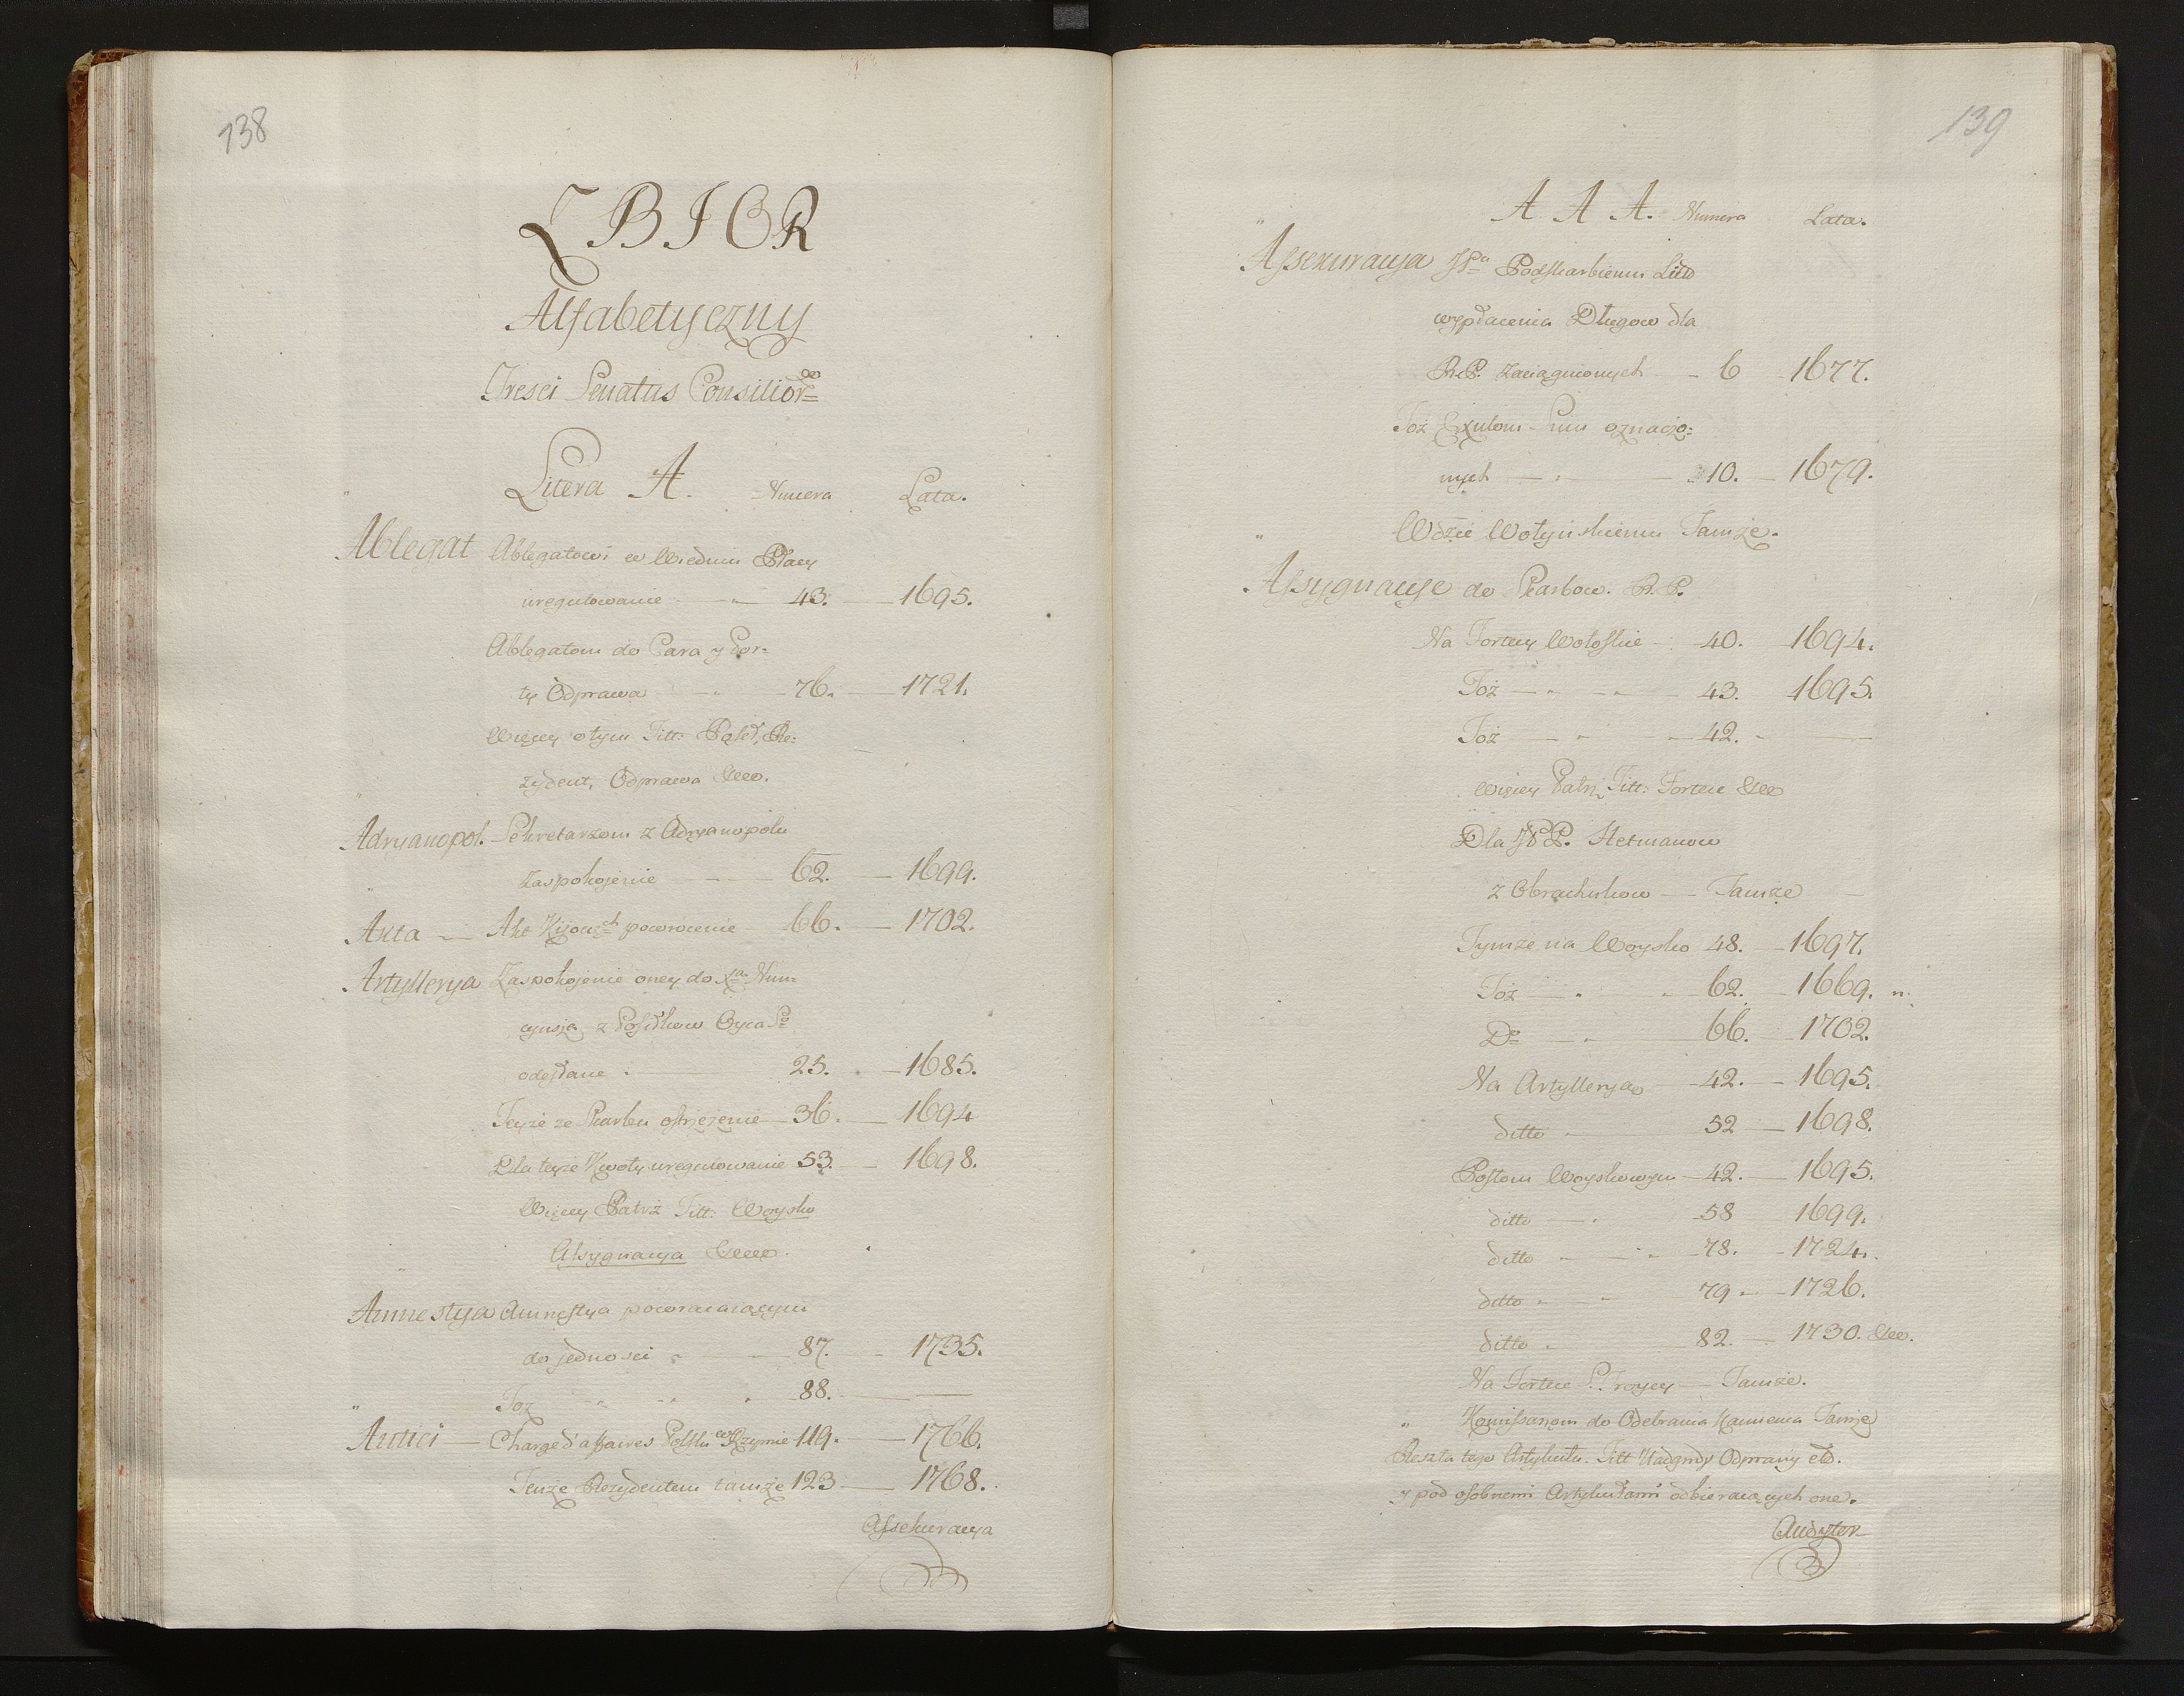 138
ZBIOR
Alfabetyczny
Tresci Senatus Consilior
Litera A. Numera Lata.
Ablegat Ablegatowi w Wiedniu Płacy
uregulowanie 43. 1695.
Ablegatom do Cara y Por=
ty Odprawa 76. 1721.
Więcey o tym Titt: Poseł, Re=
zydent, Odprawa
Adryanopol. Sekretarzom z Adryanopolu
zaspokojenie 62. 1699.
Akta Akt powrócenie 66. 1702.
Artyllerya Zaspokojenie oney do Xa Nun=
cyusza z Posiłkow Oyca So
odesłane 25. 1685.
Teyże ze Skarbu 36. 1694
Dla teyże Kwoty uregulowanie 53. 1698.
Więcey Patrz Titt: Woysko
Assygnacya
Amnestya Amnestya powracaiącym
do jedności 87. 1735.
Toż 88.
Antici Charge d'affaires Polski w Rzymie 119. 1766.
Tenże Rezydentem tamże 123 1768.
Assekuracya
139
A A A. Numera Lata.
Assekuracya JPu Podskarbiemu Litto
wypłacenia Długow dla
R.P. zaciągnionych 6 1677.
Toż Exulom Sum oznaczo=
nych 10. 1679.
Wdzie Wołyńskiemu Tamże.
Assygnacye do Skarbow. R.P.
Na Fortecy Wołoskie 40. 1694.
Toż 43. 1695.
Toż 42.
więcey Patrz Titt: Fortece
Dla JPP. Hetmanow
z Obrachukow Tamże
Tymże na Woysko 48. 1697.
Toż 62. 1669.
Do 66. 1702.
Na Artylleryą 42. 1695.
ditto 52 1698.
Posłom Woyskowym 42. 1695.
ditto 58 1699.
ditto 78. 1724.
ditto 79 1726.
ditto 82. 1730.
Na Fortece S. Troycy Tamże.
Komissarzom do Odebrania Kamienca Tamże
Reszta tego Artykułu. Titt Nadgrody Odprawy etc.
y pod osobnemi Artykułami odbieraiących one.
Audytor